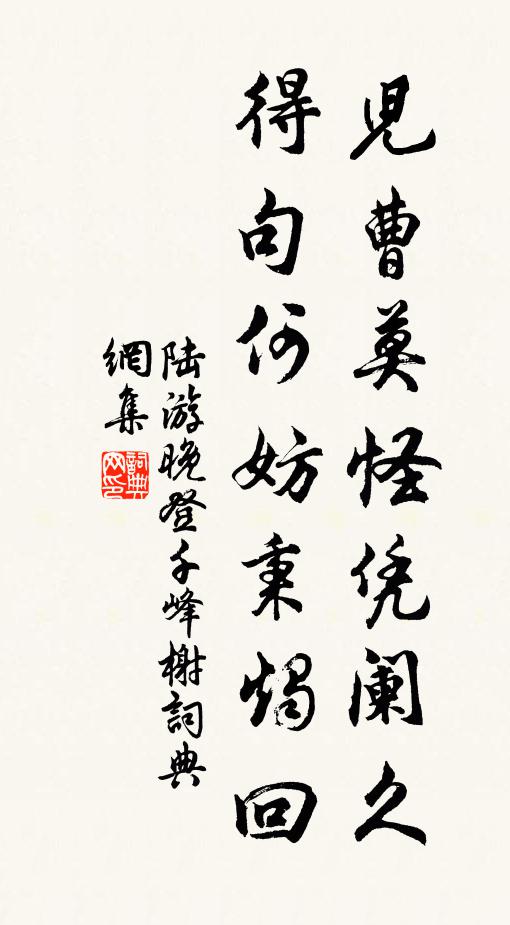 児曹莫怪凭阑久
得句何妨秉燭回
陆游晚登千峰榭詞典
網集
詞典网印